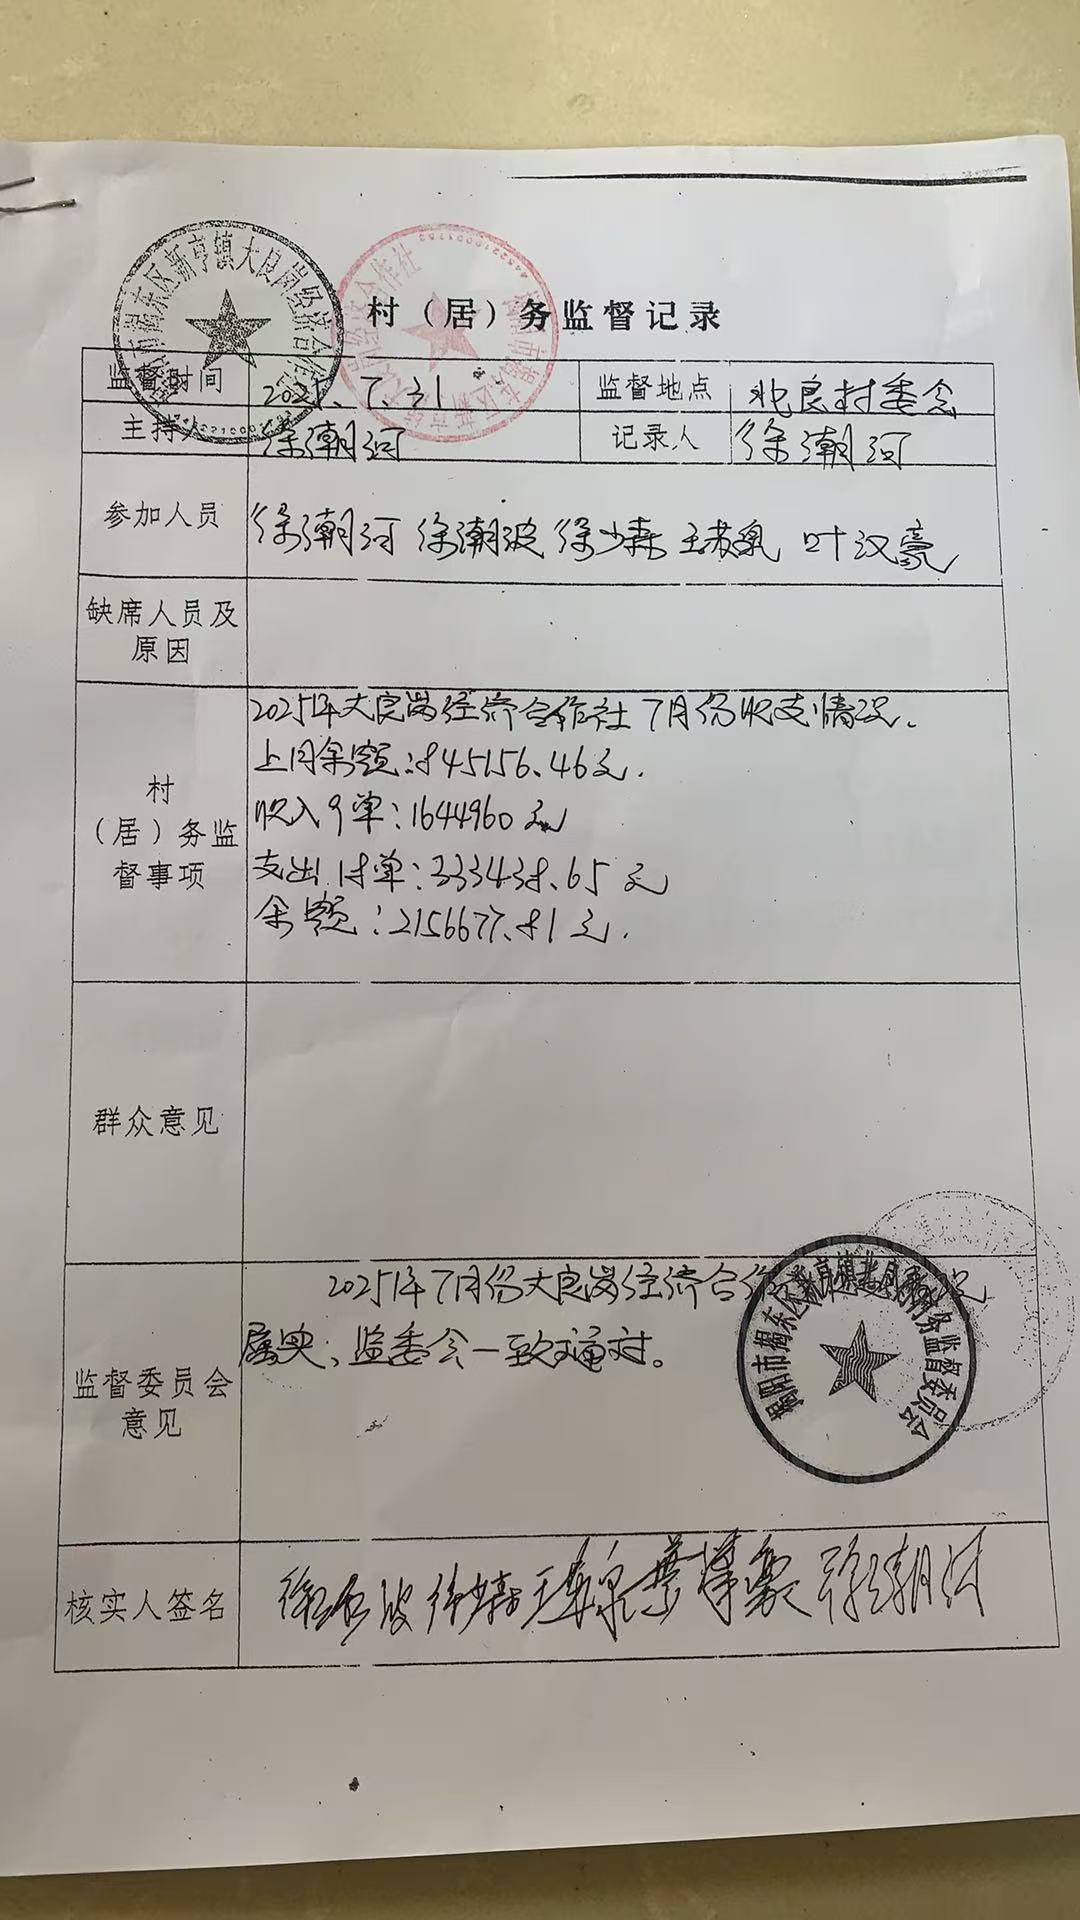 村（居）务监督记录
监督时间 2025.7.31 监督地点 北良村委会
主持人 徐潮河 记录人 徐潮河
参加人员 徐潮河 徐潮波 徐少森 王 叶汉豪
缺席人员及
原因
2025年大良岗经济合作社7月份收支情况.
上月余额:845156.46元.
村
（居）务监
督事项
收入9单:1644960元
支出 单:333438.65元
余额:2156677.81元.
群众意见
2025年7月份大良岗经济合作
属实,监委会一致通过。
监督委员会
意见
核实人签名
揭东区新亨镇大良岗经济合作
揭阳市揭东区新亨镇 村务监督委员会